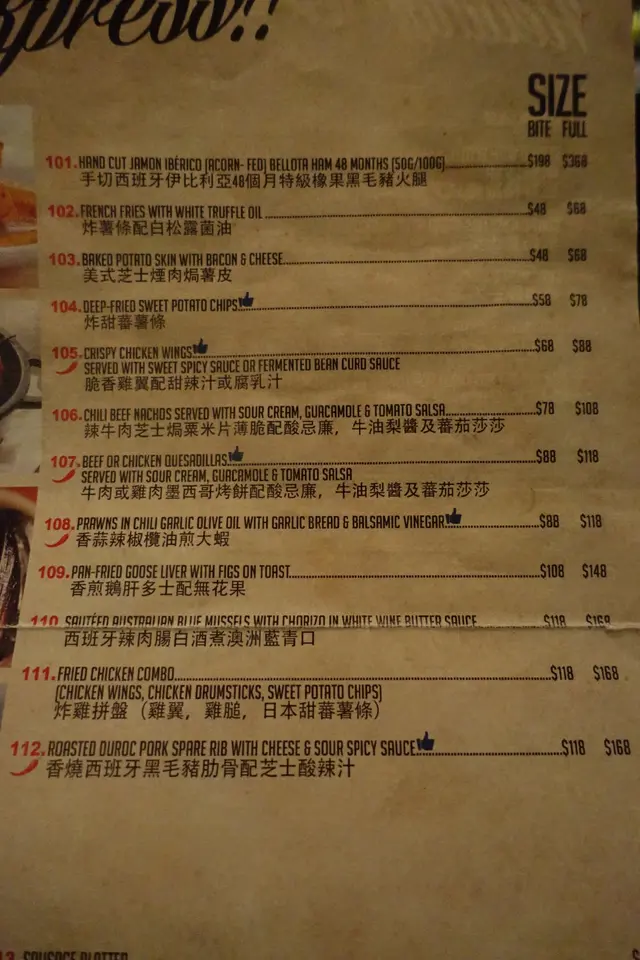 xpress!!
SIZE
BITE FULL
101. HAND CUT JAMON IBÉRICO (ACORN- FED) BELLOTA HAM 48 MONTHS (50G/100G) $198 $368
手切西班牙伊比利亞48個月特級橡果黑毛豬火腿
102. FRENCH FRIES WITH WHITE TRUFFLE OIL $48 $68
炸薯條配白松露菌油
103. BAKED POTATO SKIN WITH BACON & CHEESE $48 $68
美式芝士煙肉焗薯皮
104. DEEP-FRIED SWEET POTATO CHIPS $58 $78
炸甜蕃薯條
105. CRISPY CHICKEN WINGS $68 $88
SERVED WITH SWEET SPICY SAUCE OR FERMENTED BEAN CURD SAUCE
脆香雞翼配甜辣汁或腐乳汁
106. CHILI BEEF NACHOS SERVED WITH SOUR CREAM, GUACAMOLE & TOMATO SALSA $78 $108
辣牛肉芝士焗粟米片薄脆配酸忌廉，牛油梨醬及蕃茄莎莎
107. BEEF OR CHICKEN QUESADILLAS $88 $118
SERVED WITH SOUR CREAM, GUACAMOLE & TOMATO SALSA
牛肉或雞肉墨西哥烤餅配酸忌廉，牛油梨醬及蕃茄莎莎
108. PRAWNS IN CHILI GARLIC OLIVE OIL WITH GARLIC BREAD & BALSAMIC VINEGAR $88 $118
香蒜辣椒欖油煎大蝦
109. PAN-FRIED GOOSE LIVER WITH FIGS ON TOAST $108 $148
香煎鵝肝多士配無花果
110. SAUTÉED AUSTRALIAN BLUE MUSSELS WITH CHORIZO IN WHITE WINE BUTTER SAUCE $118 $168
西班牙辣肉腸白酒煮澳洲藍青口
111. FRIED CHICKEN COMBO $118 $168
(CHICKEN WINGS, CHICKEN DRUMSTICKS, SWEET POTATO CHIPS)
炸雞拼盤（雞翼，雞髀，日本甜蕃薯條）
112. ROASTED DUROC PORK SPARE RIB WITH CHEESE & SOUR SPICY SAUCE $118 $168
香燒西班牙黑毛豬肋骨配芝士酸辣汁
13 SAUSAGE PLATTER